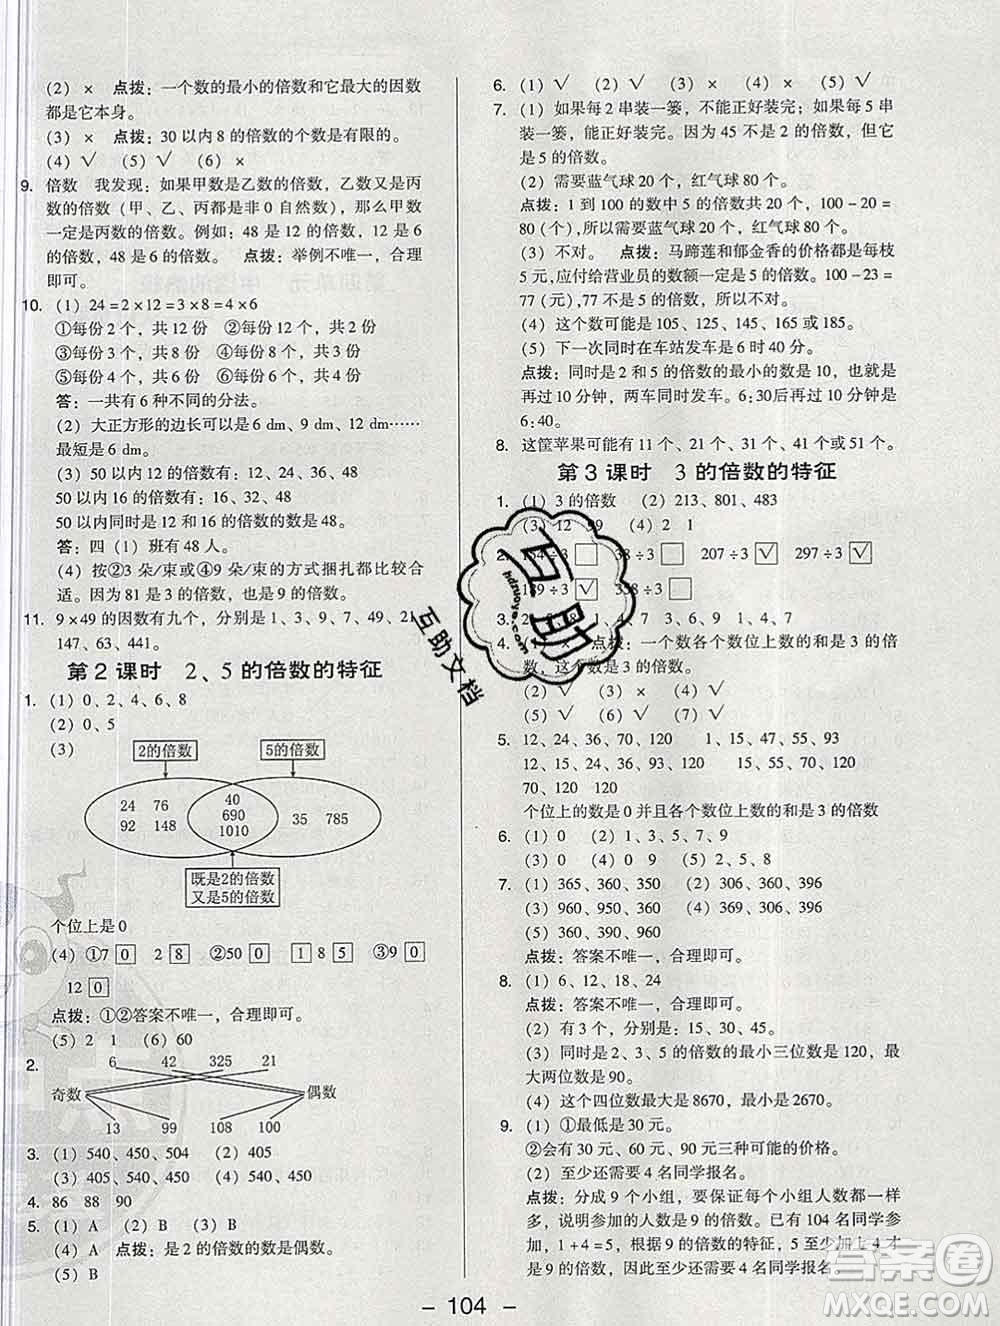 (2) × 点拨：一个数的最小的倍数和它最大的因数
都是它本身。
(3) × 点拨：30 以内 8 的倍数的个数是有限的。
(4) √ (5) √ (6) ×
9. 倍数 我发现：如果甲数是乙数的倍数，乙数又是丙
数的倍数（甲、乙、丙都是非 0 自然数），那么甲数
一定是丙数的倍数。例如：48 是 12 的倍数，12 是 6
的倍数，48 是 6 的倍数。 点拨：举例不唯一，合理
即可。
10. (1) 24＝2×12＝3×8＝4×6
①每份 2 个，共 12 份 ②每份 12 个，共 2 份
③每份 3 个，共 8 份 ④每份 8 个，共 3 份
⑤每份 4 个，共 6 份 ⑥每份 6 个，共 4 份
答：一共有 6 种不同的分法。
(2) 大正方形的边长可以是 6 dm、9 dm、12 dm……
最短是 6 dm。
(3) 50 以内 12 的倍数有：12、24、36、48
50 以内 16 的倍数有：16、32、48
50 以内同时是 12 和 16 的倍数有：48
答：四（1）班有 48 人。
(4) 按②3 朵/束、⑤9 朵/束的方式捆扎都比较合
适。因为 81 是 3 的倍数，也是 9 的倍数。
11. 9×49 的因数有九个，分别是 1、3、7、9、49、21、
147、63、441。
第 2 课时 2、5 的倍数的特征
1. (1) 0、2、4、6、8
(2) 0、5
(3)
2的倍数 5的倍数
24 76 40
92 148 690 35 785
1010
既是2的倍数
又是5的倍数
个位上是 0
(4) ①7 0 2 8 ②50 0 1 8 5 ③9 0
12 0
点拨：①②答案不唯一，合理即可。
(5) 2 1 (6) 60
2. 6 42 325 21
奇数 偶数
13 99 108 100
3. (1) 540、450、504 (2) 405
(3) 405、540、450 (4) 540、450
4. 86 88 90
5. (1) A (2) B (3) B
(4) A 点拨：是 2 的倍数的数是偶数。
(5) B
6. (1) √ (2) √ (3) × (4) × (5) √
7. (1) 如果每 2 串装一篓，不能正好装完；如果每 5 串
装一篓，能正好装完。因为 45 不是 2 的倍数，但它
是 5 的倍数。
(2) 需要蓝气球 20 个，红气球 80 个。
点拨：1 到 100 的数中 5 的倍数共 20 个，100－20＝
80（个），所以需要蓝气球 20 个、红气球 80 个。
(3) 不对。 点拨：马蹄莲和郁金香的价格都是每枝
5 元，应付给营业员的数额一定是 5 的倍数。100－23＝
77（元），77 不是 5 的倍数，所以找的钱不对。
(4) 这个数可能是 105、125、145、165 或 185。
(5) 下一次同时在车站发车是 6 时 40 分。
点拨：同时是 2 和 5 的倍数的最小的数是 10，也就是
再过 10 分钟，两车同时发车。6:30后再过 10 分钟是
6:40。
8. 这筐苹果可能有 11 个、21 个、31 个、41 个或 51 个。
第 3 课时 3 的倍数的特征
1. (1) 3 的倍数 (2) 213、801、483
(3) 12 99 (4) 2 1
2. 154÷3 □ 58÷3 □ 207÷3 √ 297÷3 √
189÷3 √ □
4. (1) × 点拨：一个数各个数位上数的和是 3 的倍
数，这个数是 3 的倍数。
(2) √ (3) × (4) √
(5) √ (6) √ (7) √
5. 12、24、36、70、120 1、15、47、55、93
12、15、24、36、93、120 15、47、55、93
70、120 120
个位上的数是 0 并且各个数位上数的和是 3 的倍数
6. (1) 0 (2) 1、3、5、7、9
(3) 0 (4) 0 9 (5) 2、5、8
7. (1) 365、360、350 (2) 365、360、350
(3) 960、950、360 (4) 365、950
(5) 360、360、960
点拨：答案不唯一，合理即可。
8. (1) 6、12、18、24
点拨：答案不唯一，合理即可。
(2) 有 3 个，分别是：15、30、45。
(3) 同时是 2、3、5 的倍数的最小三位数是 120，最
大两位数是 90。
(4) 这个四位数最大是 8670，最小是 2670。
9. (1) ①最低是 30 元。
②会有 30 元、60 元、90 元三种可能的价格。
(2) 至少还需要 4 名同学报名。
点拨：分成 9 个小组，要保证每个小组人数都一样
多，说明参加的人数是 9 的倍数。已有 104 名同学参
加，1＋4＝5，根据 9 的倍数的特征，5 至少加上 4 才
是 9 的倍数，因此至少还需要 4 名同学报名。
- 104 -
互助
hdzuoye.com
互助文档
答案圈
MXQE.COM